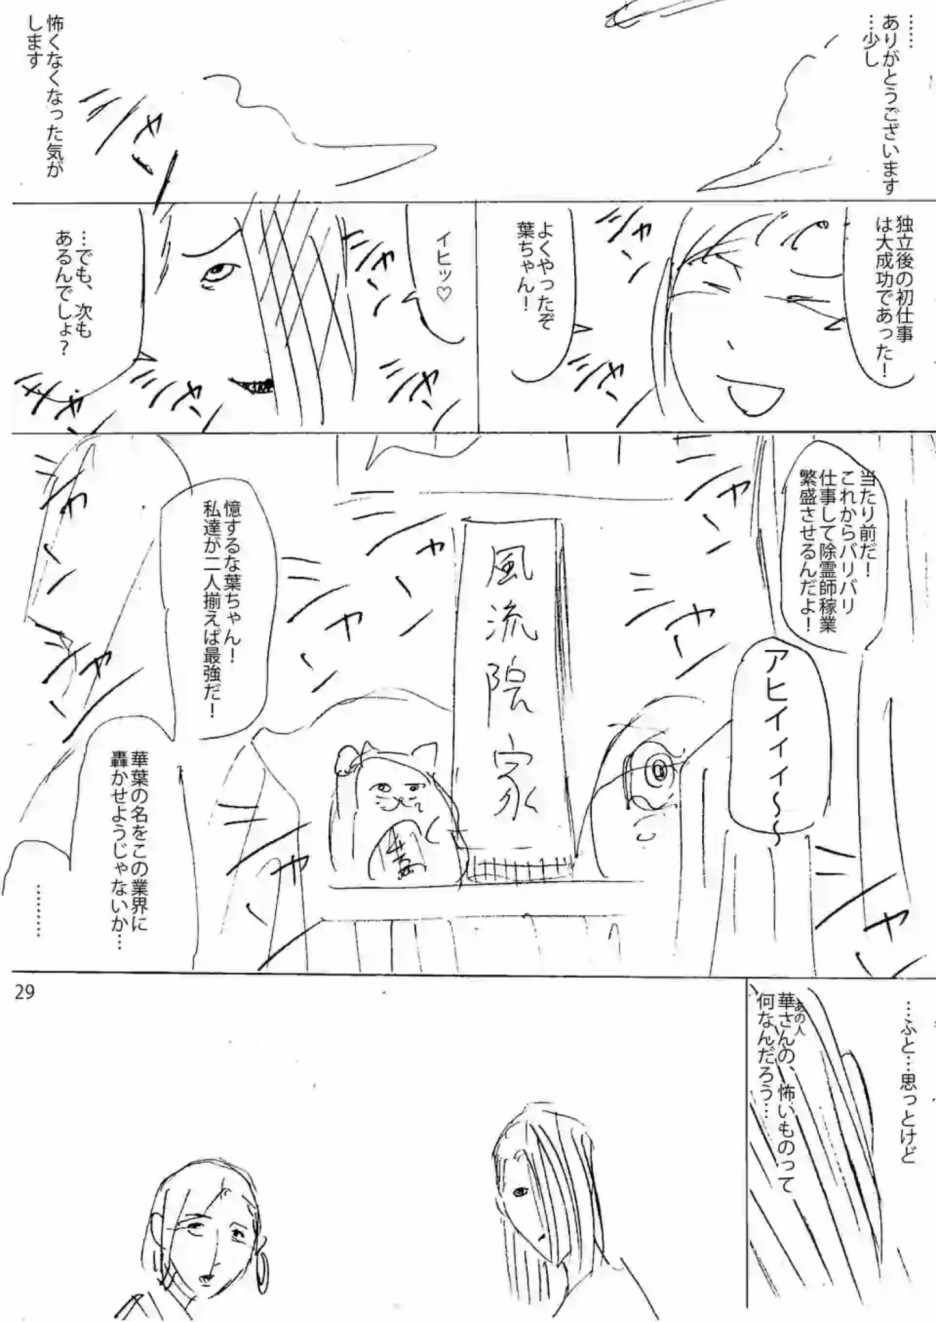 ……
ありがとうございます
…少し
怖くなくなった気が
します
シャ
独立後の初仕事
は大成功であった！
よくやったぞ
葉ちゃん！
シャ
シャ
イヒッ♡
…でも、次も
あるんでしょ？
シャ
シャ
シャ
シャ
当たり前だ！
これからバリバリ
仕事して除霊師稼業
繁盛させるんだよ！
アヒィィィ～～
風流院家
憶するな葉ちゃん！
私達が二人揃えば最強だ！
華葉の名をこの業界に
轟かせようじゃないか…
………
シャ
シャ
シャ
シャ
シャ
シャ
シャ
…ふと…思っとけど
あの人
華さんの、怖いものって
何なんだろう…
29